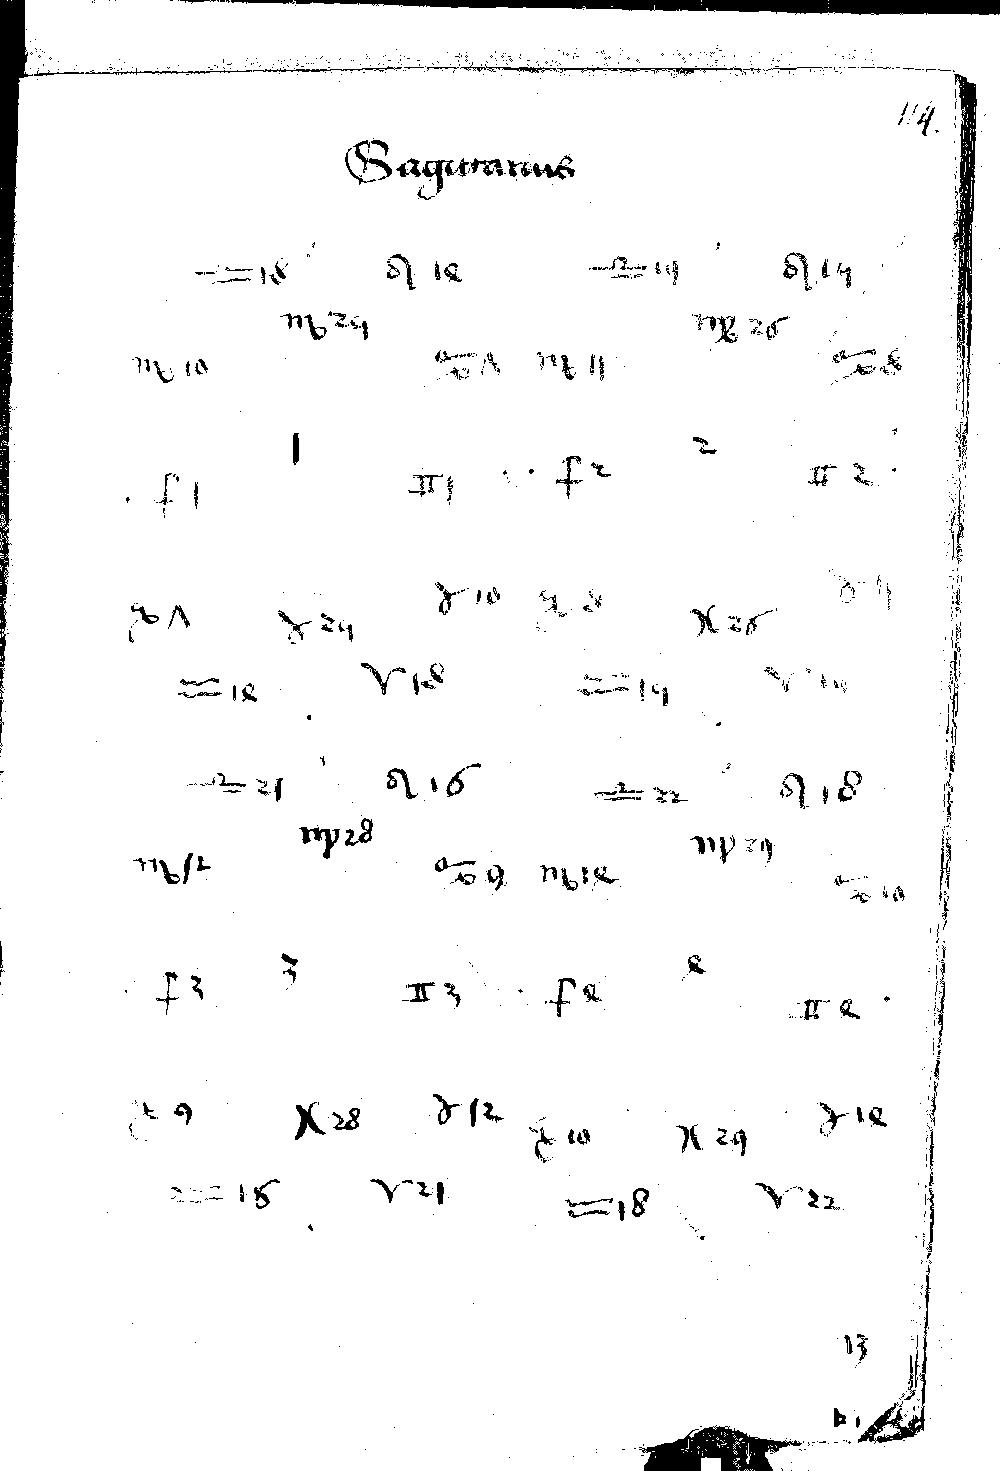 114.
Sagittarius
♎ 18 ♌ 1e ♎ 19 ♌ 19
♍ 24 ♍ 26
♏ 10 ♋ Λ ♏ 11 ♋ 8
1 2
♐ 1 ♊ 1 ♐ 2 ♊ 2
♑ Λ ♉ 10 ♑ 8 ♉ 11
♓ 26
♒ 1e ♈ 18 ♒ 19 ♈ 19
♎ 21 ♌ 16 ♎ 22 ♌ 18
♍ 28 ♍ 29
♏ 12 ♋ 9 ♏ 1e ♋ 10
3 e
♐ 3 ♊ 3 ♐ e ♊ e
♑ 9 ♓ 28 ♉ 12 ♑ 10 ♓ 29 ♉ 1e
♒ 16 ♈ 21 ♒ 18 ♈ 22
13